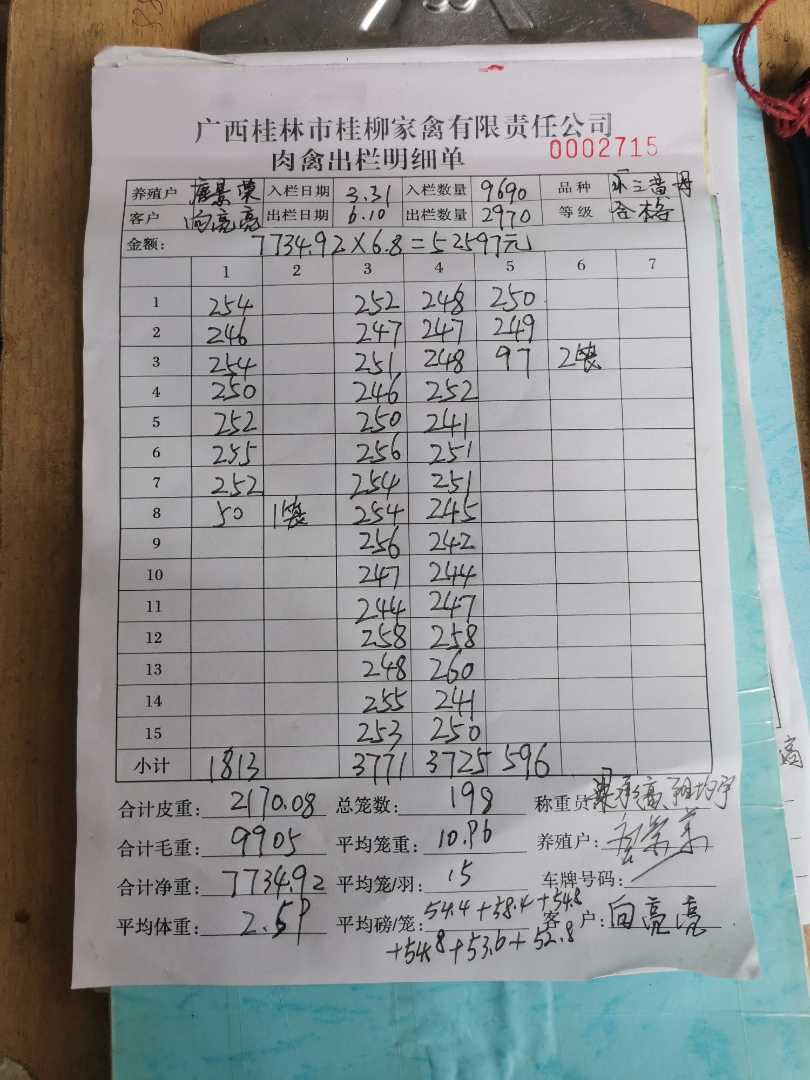 广西桂林市桂柳家禽有限责任公司
肉禽出栏明细单 0002715
养殖户 唐景荣 入栏日期 3.31 入栏数量 9690 品种 三黄母
客户 向亮亮 出栏日期 6.10 出栏数量 2970 等级 合格
金额: 7734.92×6.8=52597元
1 2 3 4 5 6 7
1 254 252 248 250
2 246 247 247 249
3 254 251 248 97 2袋
4 250 246 252
5 252 250 241
6 255 256 251
7 252 254 251
8 50 1袋 254 245
9 256 242
10 247 244
11 244 247
12 258 258
13 248 260
14 255 241
15 253 250
小计 1813 3771 3725 596
合计皮重: 2170.08 总笼数: 198 称重员
合计毛重: 9905 平均笼重: 10.96 养殖户:
合计净重: 7734.92 平均笼/羽: 15 车牌号码:
平均体重: 2.59 平均磅/笼: 54.4+58.4+54.8 客户: 向亮亮
+54.8+53.6+52.8